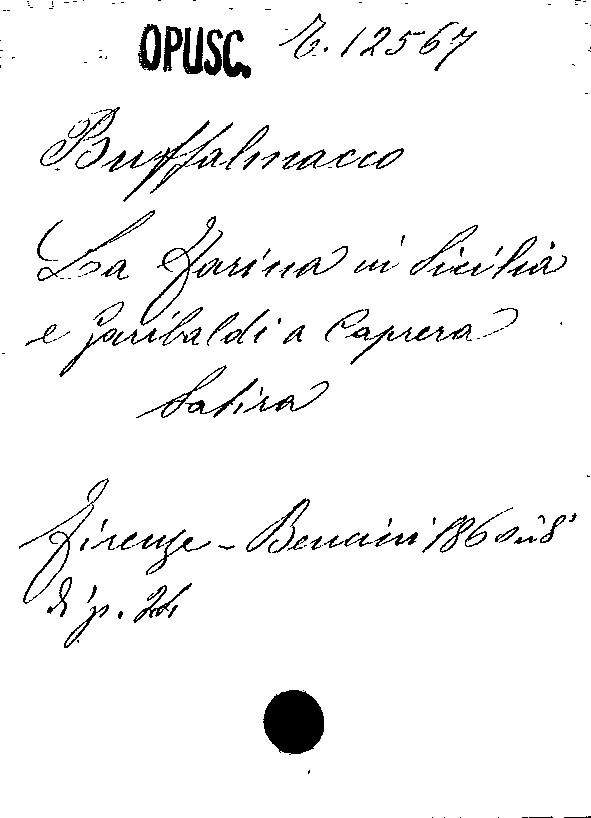 OPUSC. E. 12567
Buffalmacco
La Farina in Sicilia
e Garibaldi a Caprera
Satira
Firenze - Bencini 186 in 8°
di p. 24